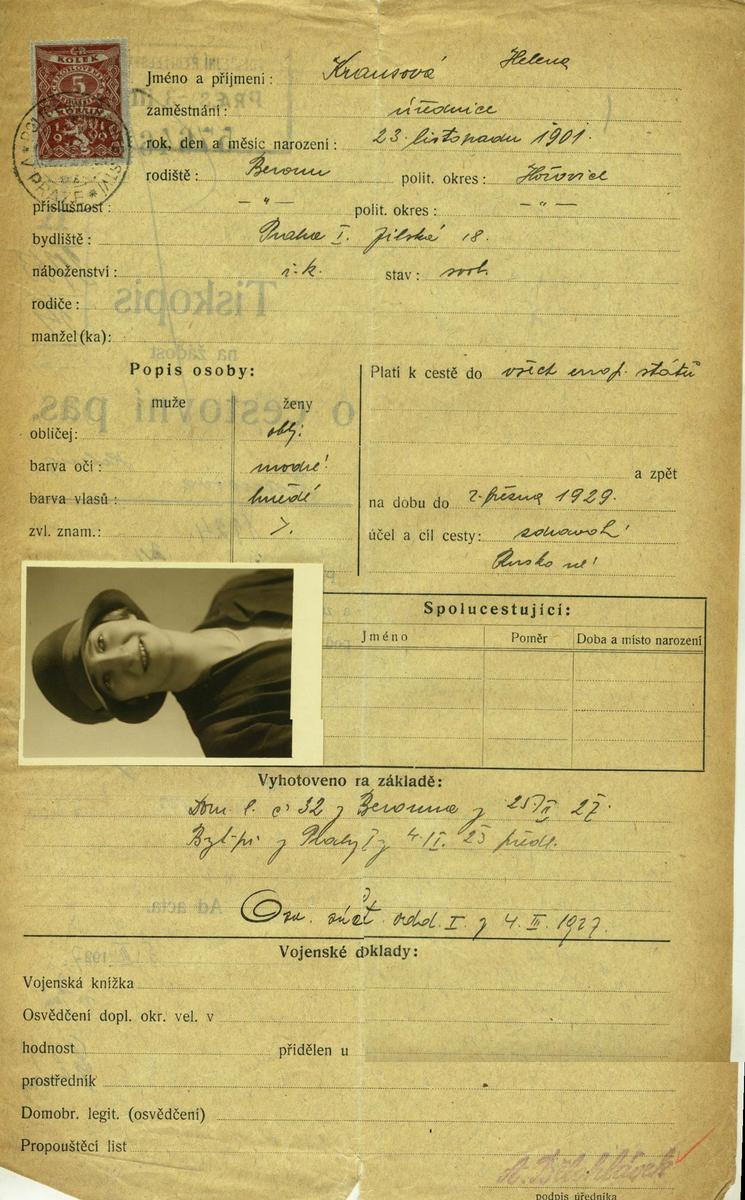 KOLEK
5
Jméno a příjmení: Krausová Helena
zaměstnání: úřednice
rok, den a měsíc narození: 23. listopadu 1901.
rodiště: Beroun polit. okres: Hořovice
příslušnost: — „ — polit. okres: — „ —
bydliště: Praha I. Jilská 18.
náboženství: ř.k. stav: svob.
rodiče:
manžel (ka):
Popis osoby:
muže ženy
obličej: obl.
barva očí: modré
barva vlasů: hnědé
zvl. znam.:
Platí k cestě do všech evrop. států
a zpět
na dobu do 2. března 1929.
účel a cíl cesty: zdravot.
Rusko ne!
Spolucestující:
Jméno Poměr Doba a místo narození
Vyhotoveno na základě:
Dom. l. č 32 z Berouna z 25/II 27.
Byt. př. z Prahy I z 4./I. 23 předl.
Osv. zúčt. odd. I. z 4. III. 1927.
Vojenské doklady:
Vojenská knížka
Osvědčení dopl. okr. vel. v
hodnost přidělen u
prostředník
Domobr. legit. (osvědčení)
Propouštěcí list
podpis úředníka
Tiskopis
na žádost
o cestovní pas.
Ad acta.